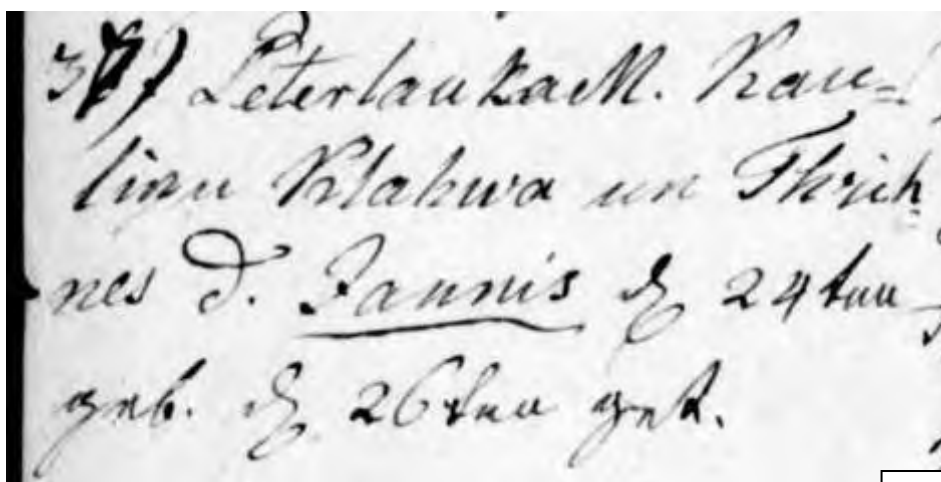 37) Peterlauka M. Kau=
linu Klahwa un Thrih
nes d. Jannis d. 24ten
geb. d. 26ten get.